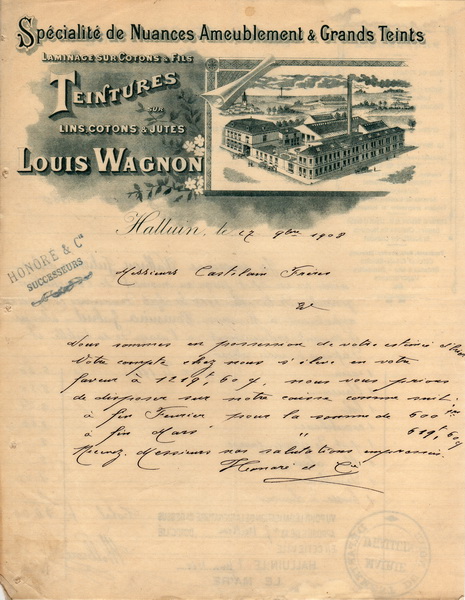 Spécialité de Nuances Ameublement & Grands Teints
LAMINAGE SUR COTONS & FILS
TEINTURES
SUR
LINS, COTONS & JUTES
LOUIS WAGNON
Halluin, le 27 9bre 1908
HONORÉ & Cie
SUCCESSEURS
Messieurs Castelain Frères
Nous sommes en possession de votre estimée d'hier
Votre compte chez nous s'élève en votre
faveur à 1219f 60, nous vous prions
de disposer sur notre caisse comme suit:
à fin Fevrier pour la somme de 600
à fin Mars " 619f 60
Recevez, Messieurs nos salutations empressées.
Honoré et Cie